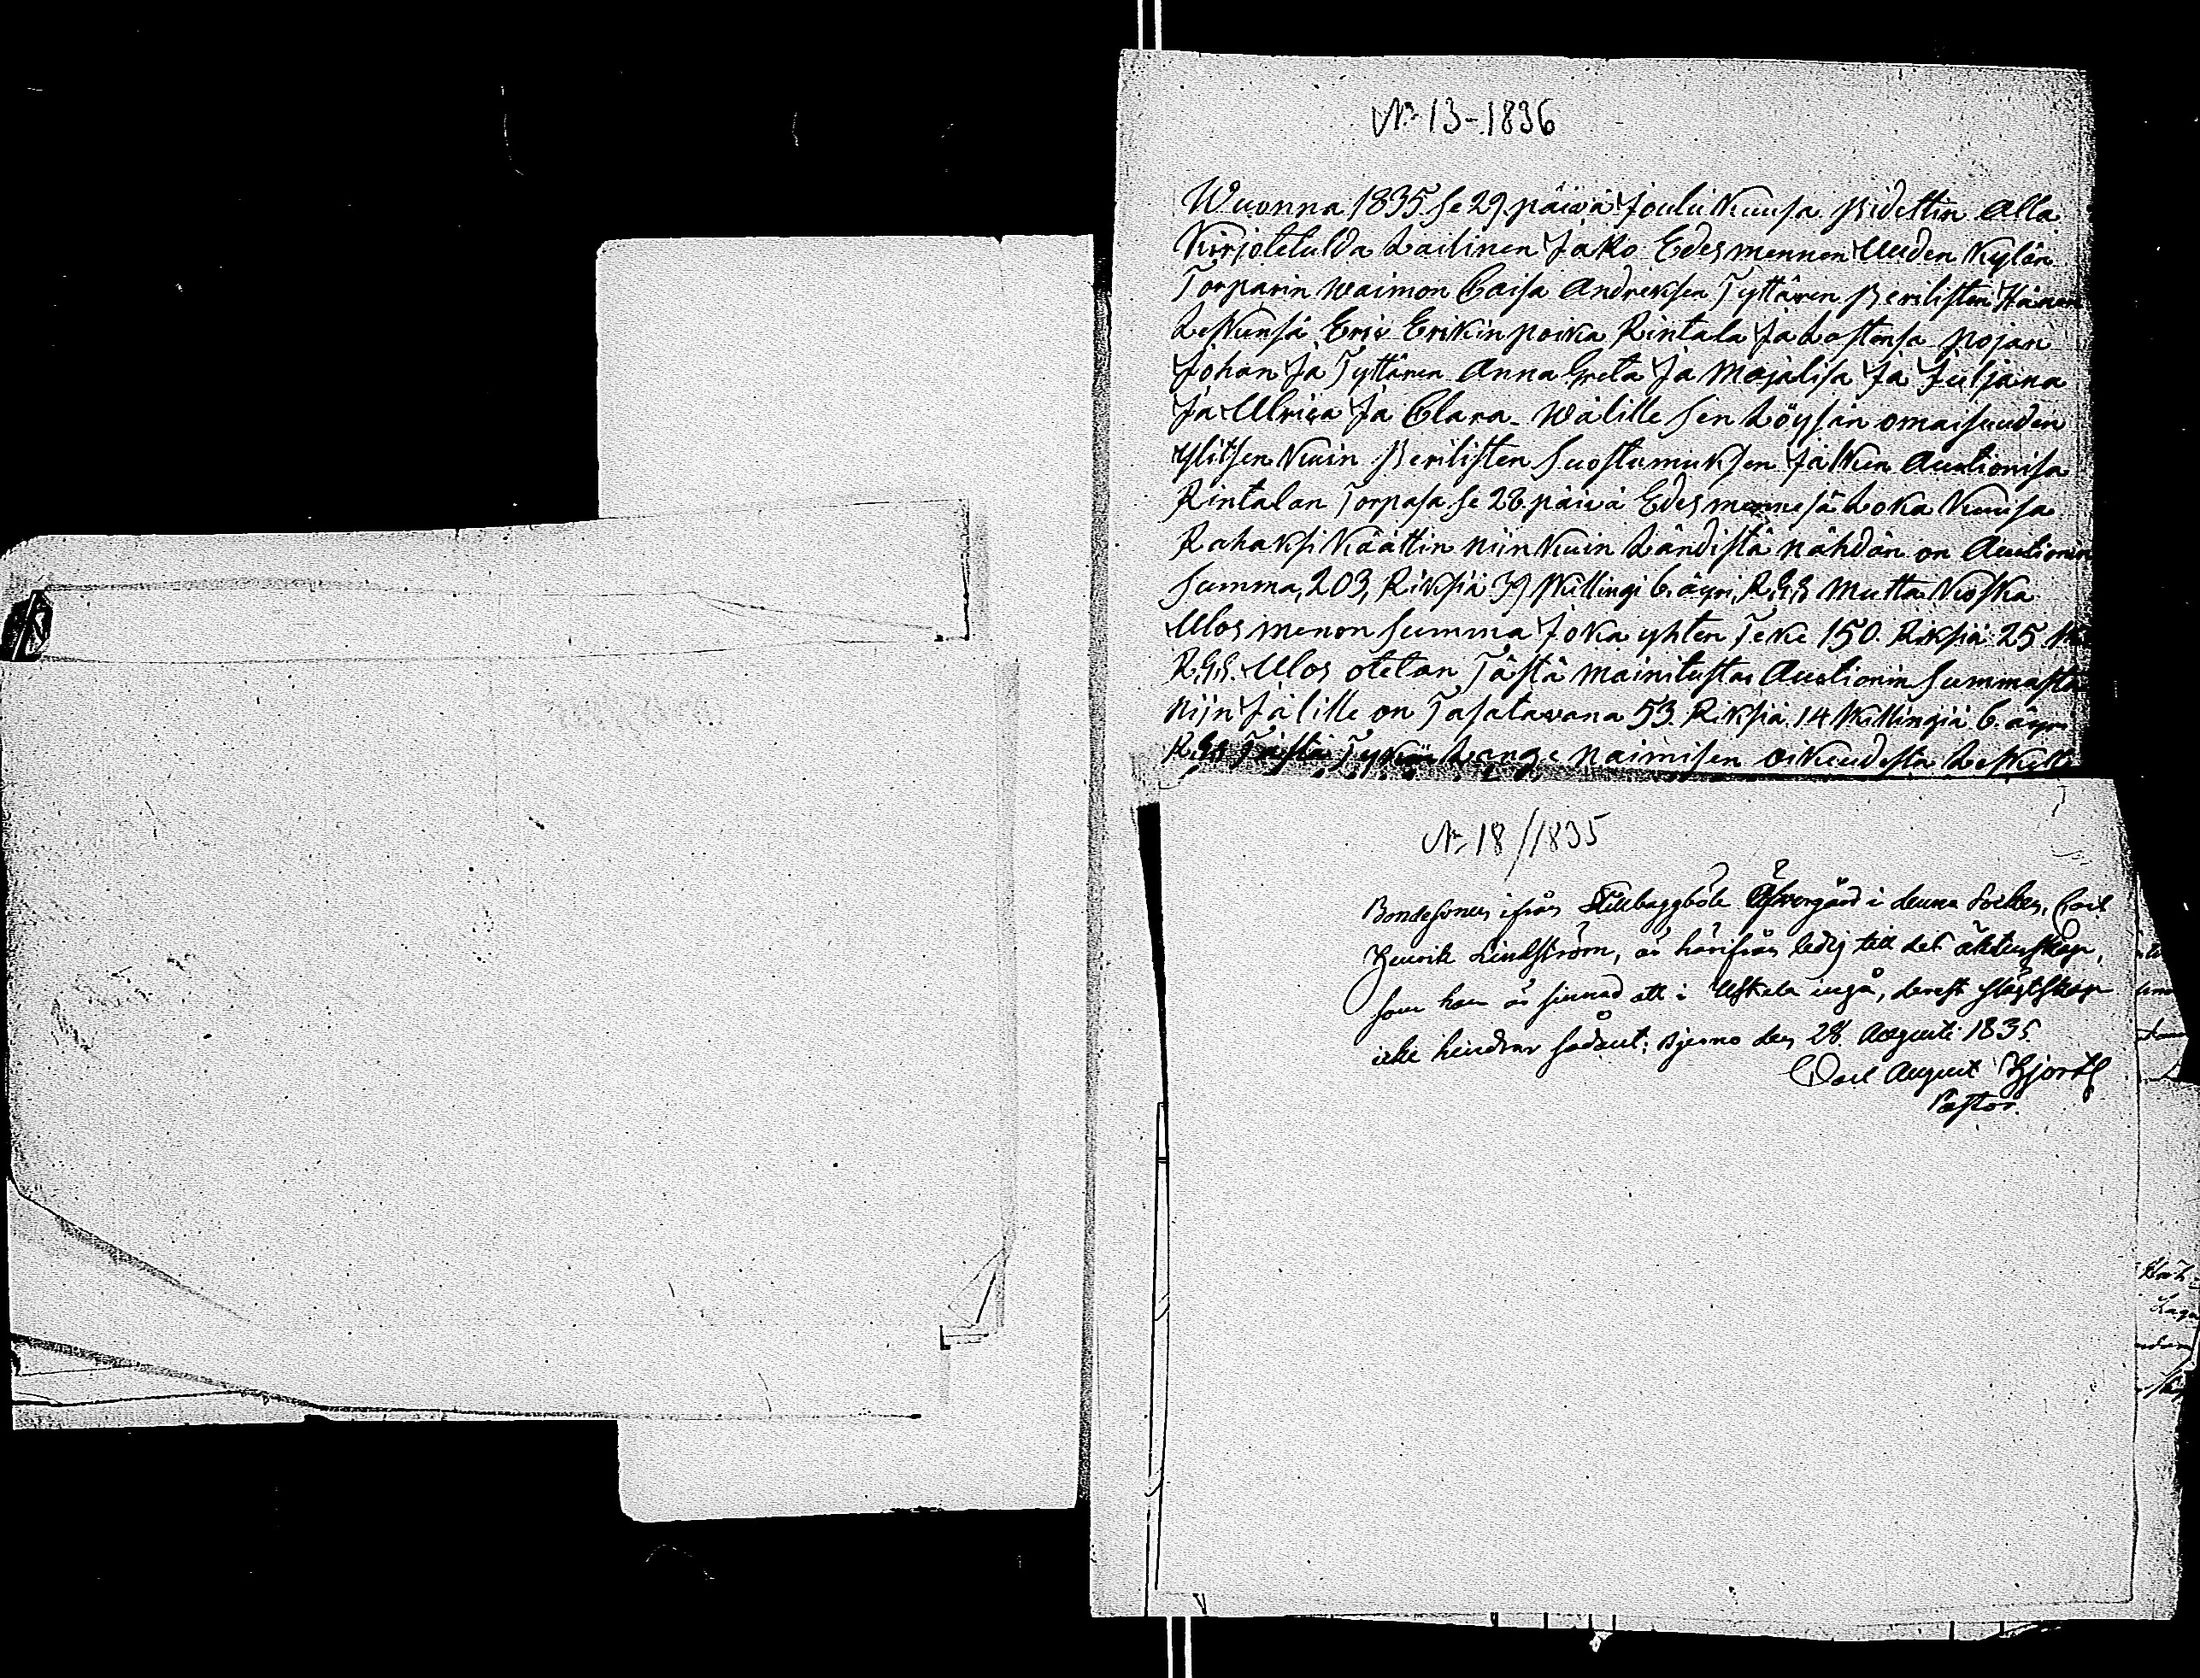 No 13-1836
Wuonna 1835 se 29 päiwä Joulu Kuusa Pidettin Alla
Kirjotetulda Lailinen Jako Edesmennen Uuden Kylän
Torparin waimon Caisa Andreksen Tyttären Perilisten Hänen
Leskensä Eric Erikin poika Rintala Ja Lastensa Pojan
Johan Ja Tyttären Anna Greta Ja Majalisa Ja Juljana
Ja Ulrica Ja Clara Wälille sen Löysän omaisuuden
Ylitsen Kuin Perilisten Suostumuksen Jälken Auctionisa
Rintalan Torpasa se 28 päiwä Edesmennesä Loka Kuusa
Rahaksi Käättin niin Kuin Tändistä nähdän on Auctionin
Summa, 203, Riksiä 39 skillingi 6 äyri, R.G.S Mutta Koska
Ulos menon Summa Joka yhten Teke 150 Riksiä 25 sk
R.G.S. Ulos otetan Tästä mainitusta Auctionin Summasta
niin Jä lille on Tasatawana 53 Riksiä 14 skillingiä 6 äyri
R.G.S Tästä Tykön Lange naimisen oikeudesta Leskelle
No 18/1835
Bondesonen ifrån Stillbaggböle Öfvergård i denna Socken, Carl
Henrik Lindström, är härifrån ledig till det äktenskap,
som han är sinnad att i Uskela ingå, derest slägtskap
icke hindrar sådant; Bjerno den 28 Augusti 1835.
Carl August Hjorth
Pastor.